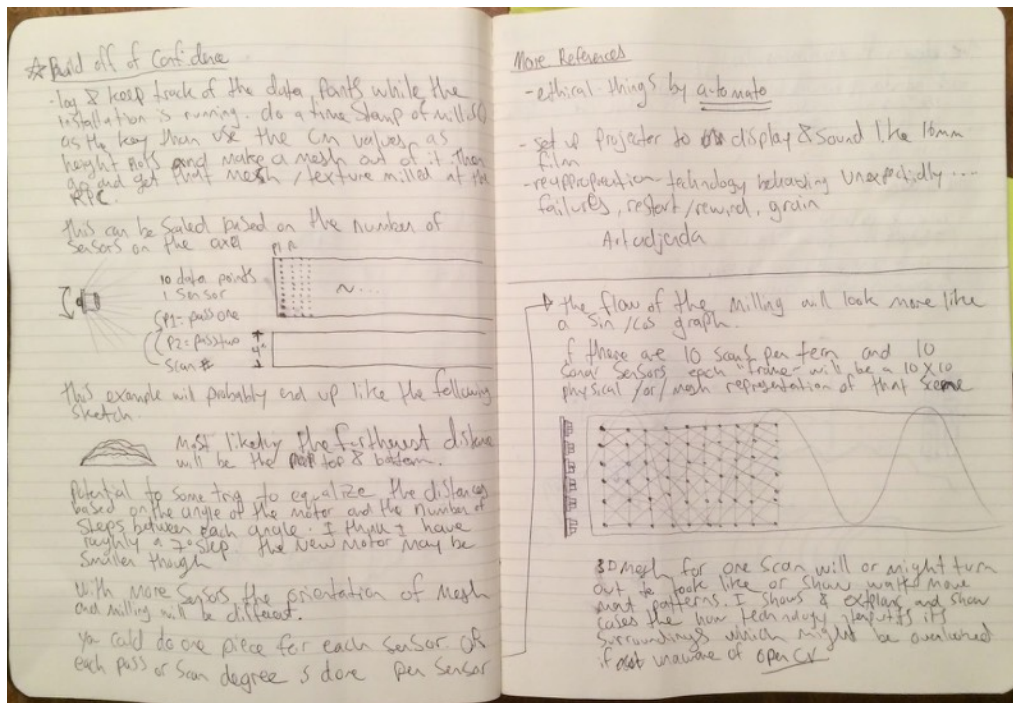 ☆ Build off of Confidence
- log & keep track of the data points while the
installation is running. do a time stamp of millis()
as the key than use the cm values as
height and make a mesh out of it then
go and get that mesh / texture milled at the
RPC.
this can be scaled based on the number of
sensors on the axel
P1 P2
10 data points
1 sensor
P1 = pass one
P2 = pass two
scan #
4"
~ ...
this example will probably end up like the following
sketch
Most likely the furthest distance
will be the top & bottom.
Potential to some trig to equalize the distances
based on the angle of the motor and the number of
steps between each angle. I think I have
roughly a 7° step. the new motor may be
smaller though
With more sensors the orientation of mesh
and milling will be different.
you could do one piece for each sensor OR
each pass or scan degree s done per sensor
More References
- ethical things by automato
- set up projector to display & sound like 16mm
film
- reappropriation technology behaving unexpectidly ....
failures, restart/rewind, grain
the flow of the milling will look more like
a sin/cos graph.
if there are 10 scans per and 10
sonar sensors each "frame" will be a 10 x 10
physical /or/ mesh representation of that scene
3D mesh for one scan will or might turn
out to look like or show move
ment patterns. I shows & explains and show
cases the how technology its
surroundings which might be overlooked
if unaware of open CV